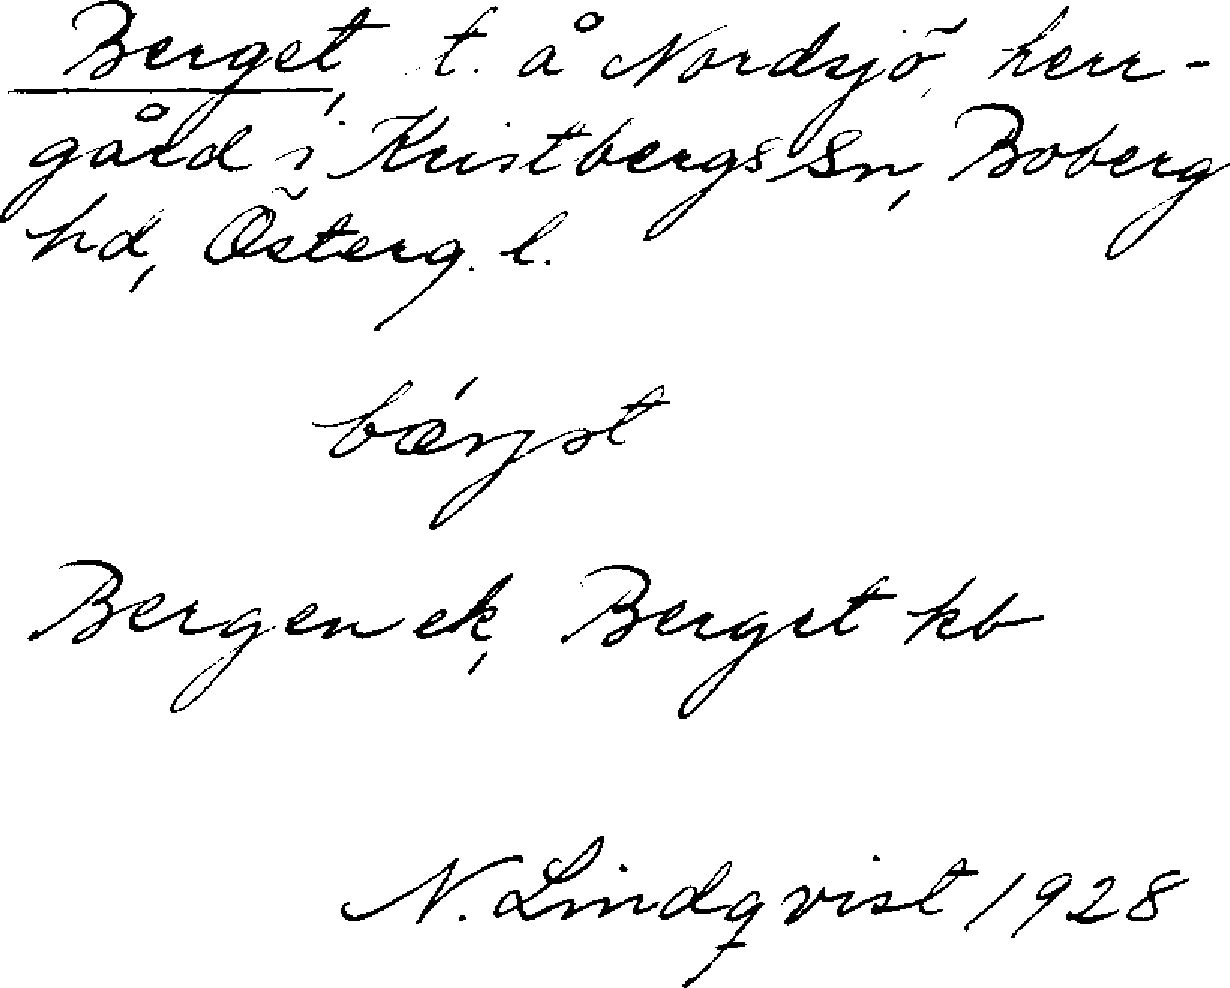 Berget, t. å Nordsjö, herr-
gård i Kristbergs sn, Boberg
hd, Österg. l.
bærjət
Bergen ek, Berget kb
N. Lindqvist 1928